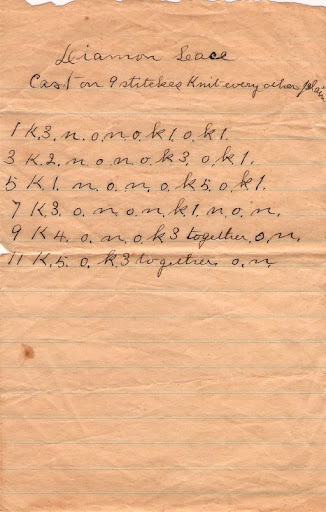 Diamon Lace
Cast on 9 stitches Knit every other plain
1 K.3, n. o, n, o, k1, o, k1.
3 K2, n. o, n, o, k3, o, k1.
5 K1. n. o, n, o, k5, o, k1.
7 K3. o. n, o, n, k1, n. o, n.
9 K4. o. n, o, k3 together, o, n,
11 K,5, o, k,3 together, o, n,